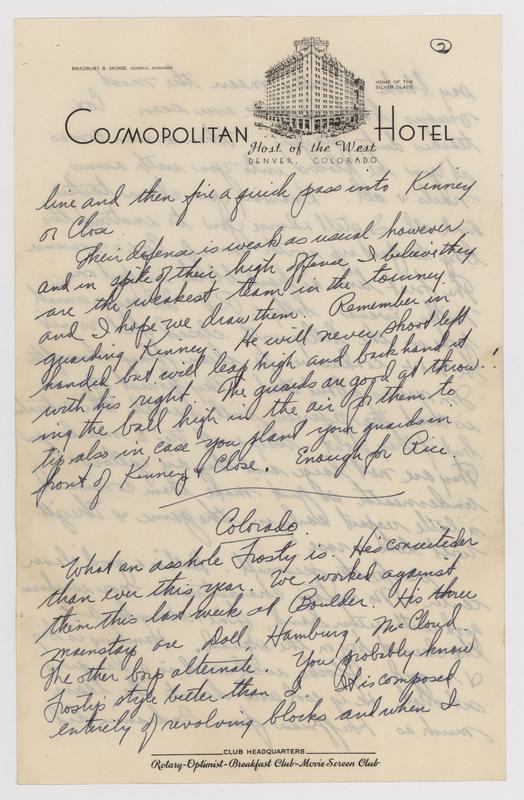 2
BRADBURY B. MORSE, GENERAL MANAGER
HOME OF THE
SILVER GLADE
COSMOPOLITAN HOTEL
Host of the West
DENVER, COLORADO
line and then fire a quick pass into Kinney
or Close.
Their defense is weak as usual however
and in spite of their high offense I believe they
are the weakest team in the tourney.
and I hope we draw them. Remember in
guarding Kinney. He will never shoot left
handed but will leap high and back hand it
with his right. The guards are good at throw-
ing the ball high in the air for them to
tip also in case you plant your guards in
front of Kinney & Close. Enough for Rice.
Colorado
What an asshole Frosty is. He's conceiteder
than ever this year. We worked against
them this last week at Boulder. His three
mainstays are Doll, Hamburg, McCloud.
The other boys alternate. You probably know
Frosty's style better than I. It is composed
entirely of revolving blocks and when I
CLUB HEADQUARTERS
Rotary-Optimist-Breakfast Club-Movie Screen Club